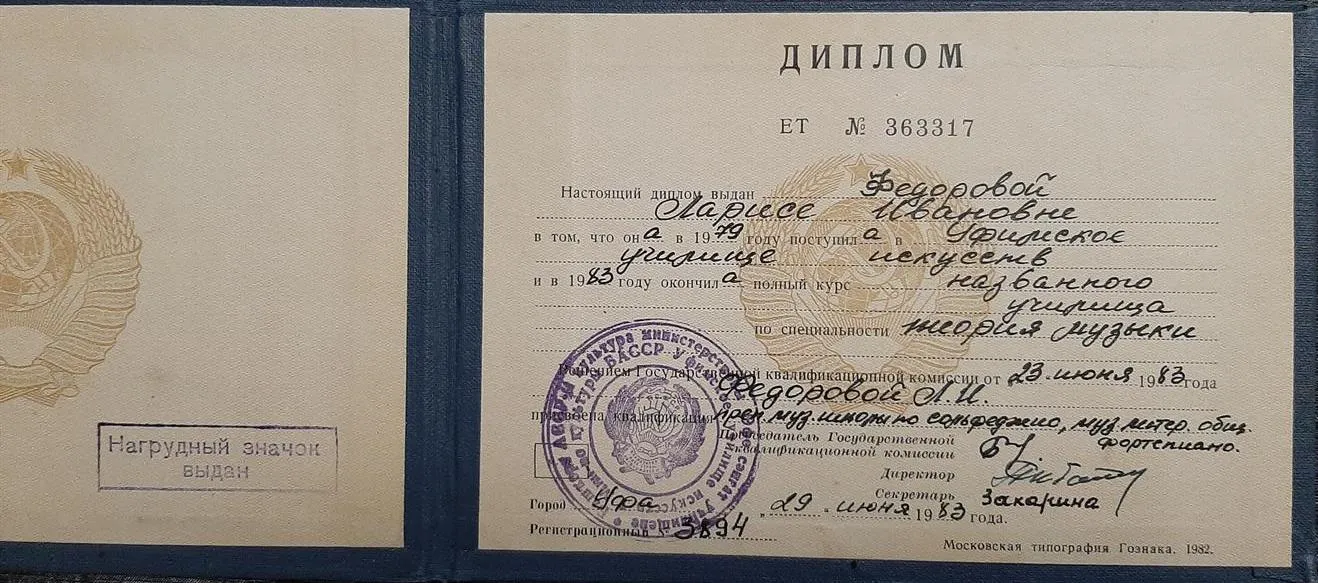 Нагрудный значок
выдан
ДИПЛОМ
ЕТ № 363317
Настоящий диплом выдан Федоровой
Ларисе Ивановне
в том, что она в 1979 году поступила в Уфимское
училище искусств
и в 1983 году окончила полный курс названного
училища
по специальности теория музыки
Решением Государственной квалификационной комиссии от 23 июня 1983 года
Федоровой Л.И.
присвоена квалификация преп. муз. школы по сольфеджио, муз. литер. общ.
фортепиано.
Председатель Государственной
квалификационной комиссии
Директор
Секретарь Закарина
Город Уфа „29 июня 1983 года.
Регистрационный № 3894
Московская типография Гознака. 1982.